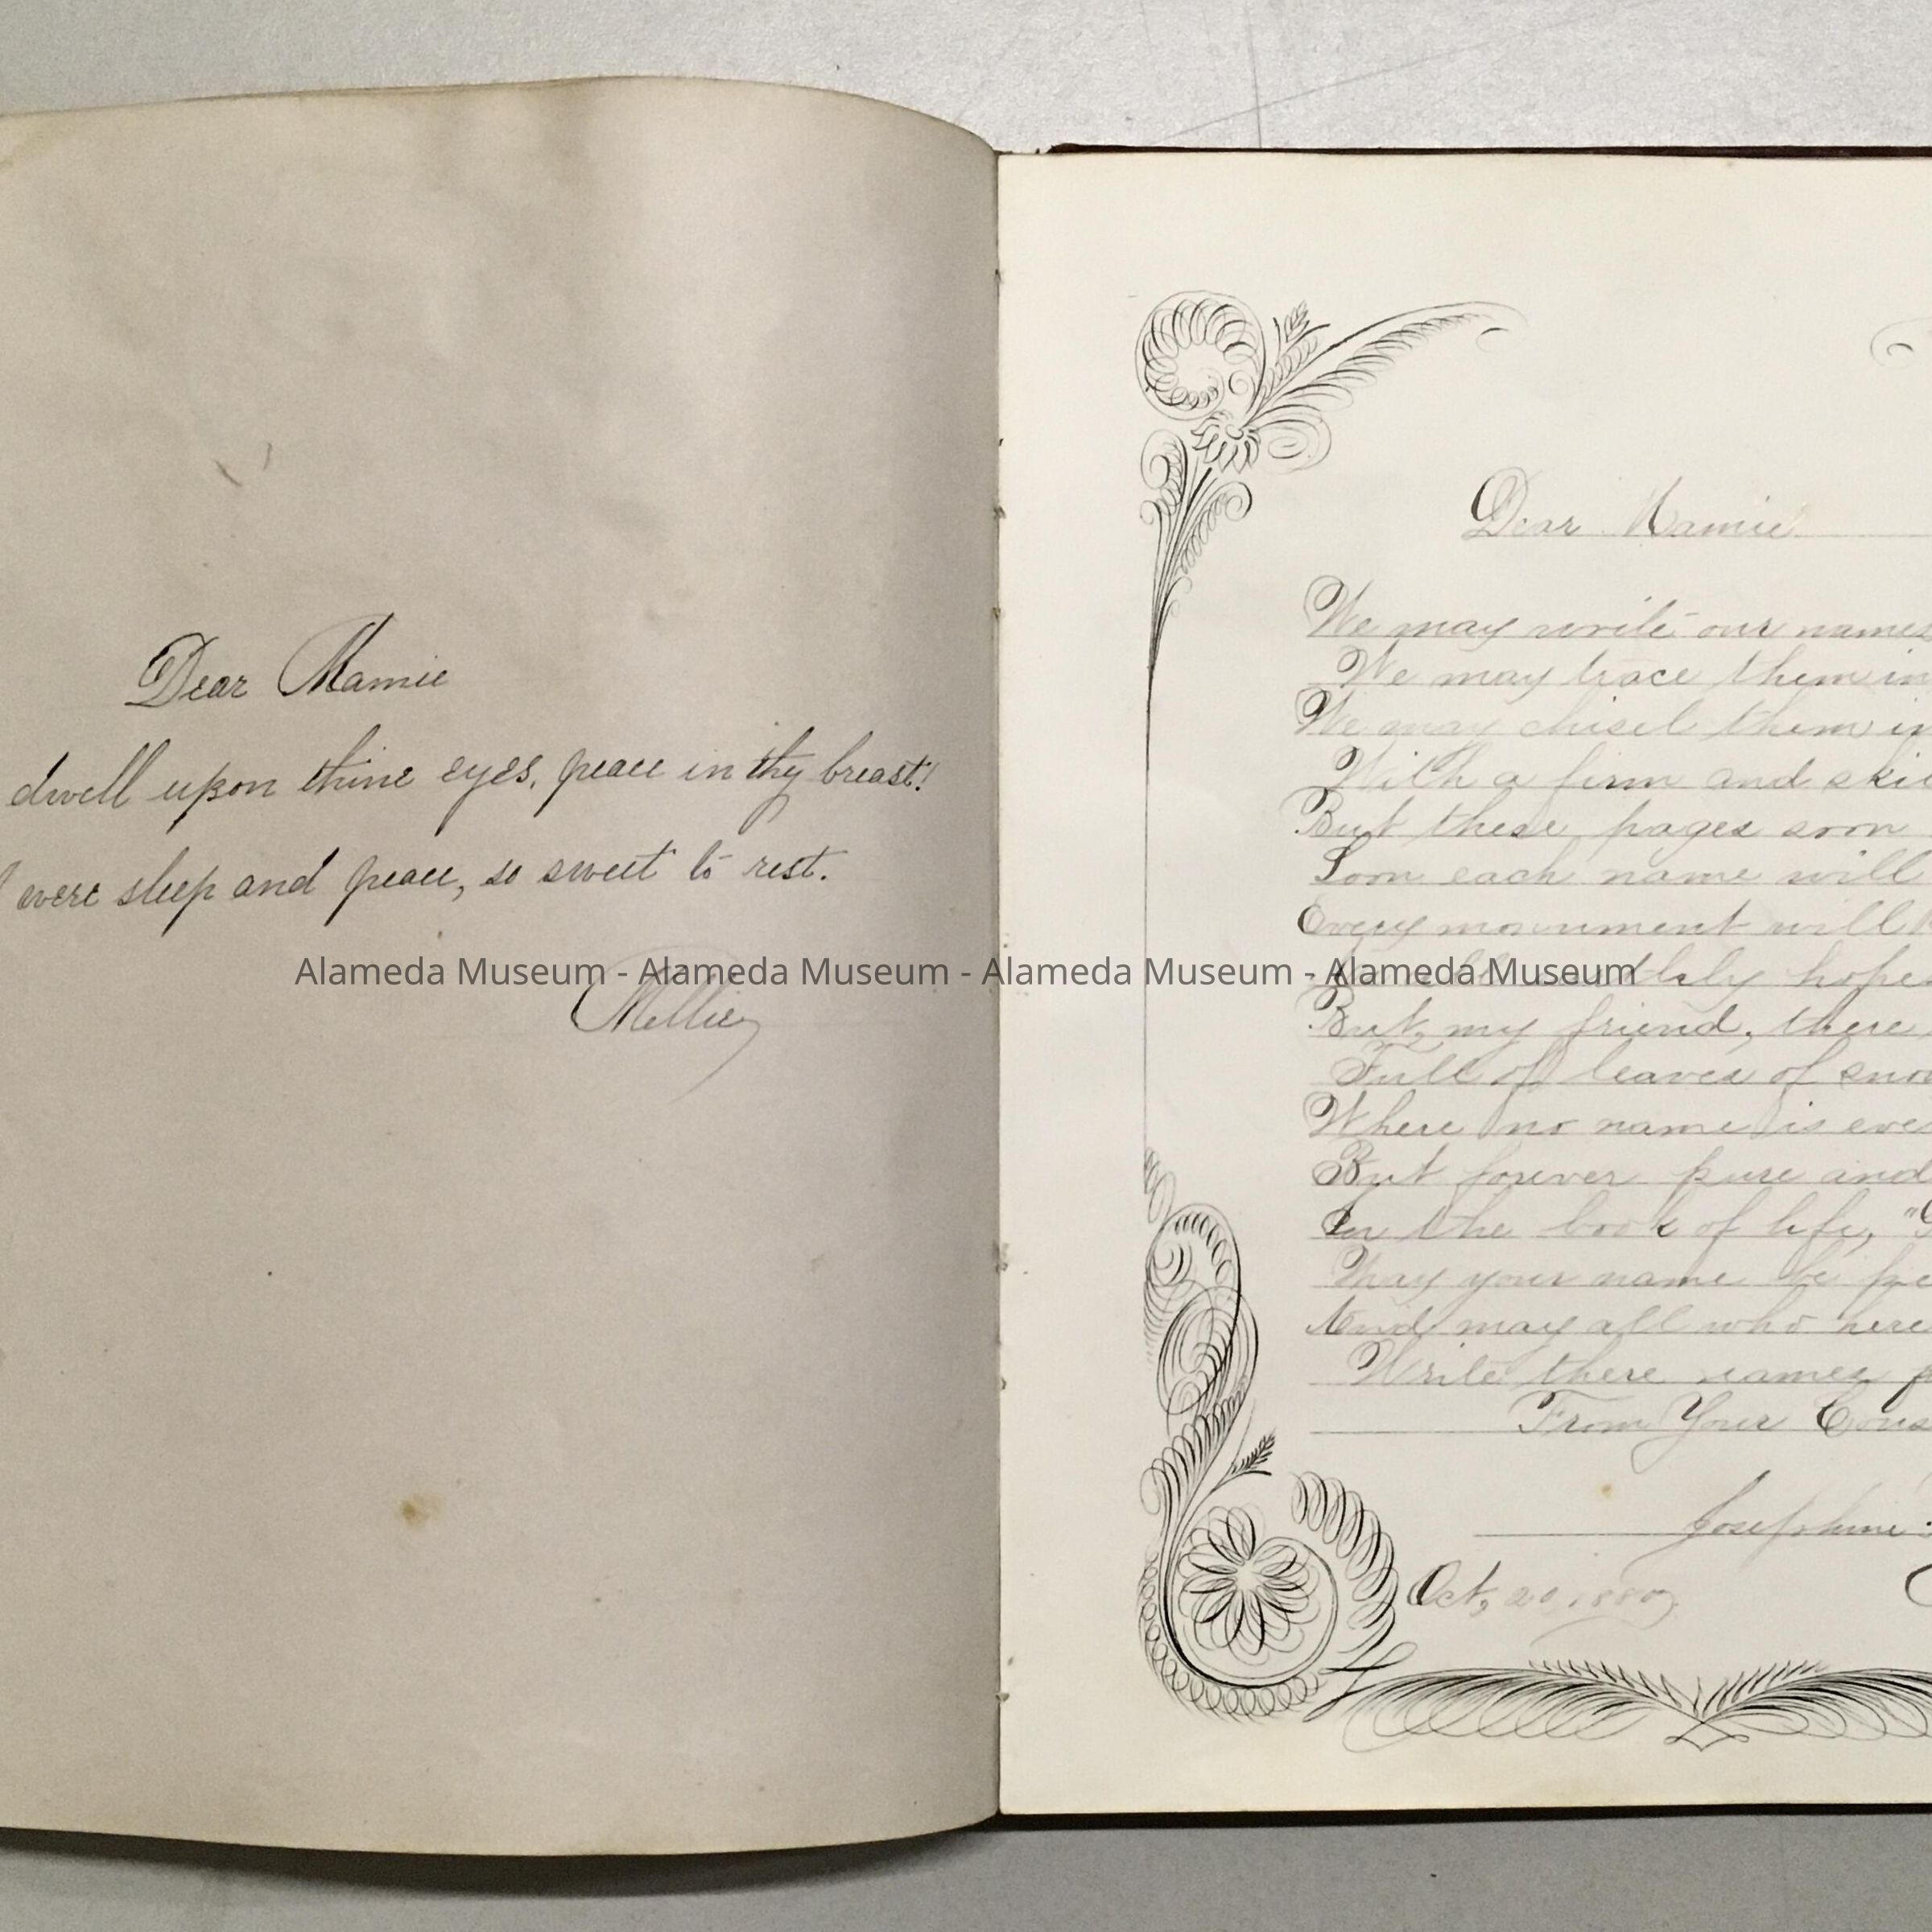 Dear Mamie
dwell upon thine eyes, peace in thy breast!
were sleep and peace, so sweet to rest.
Nellie
Alameda Museum - Alameda Museum - Alameda Museum - Alameda Museum
Dear Mamie
We may write our names
We may trace them in
We may chisel them in
With a firm and
But these pages soon
Soon each name will
Every monument will
hope
But, my friend, there
Full of leaves of
Where no name is
But forever pure and
In the book of life,
May your name be
And may all who here
Write there names
From Your
Josephine
Oct, 20, 1880